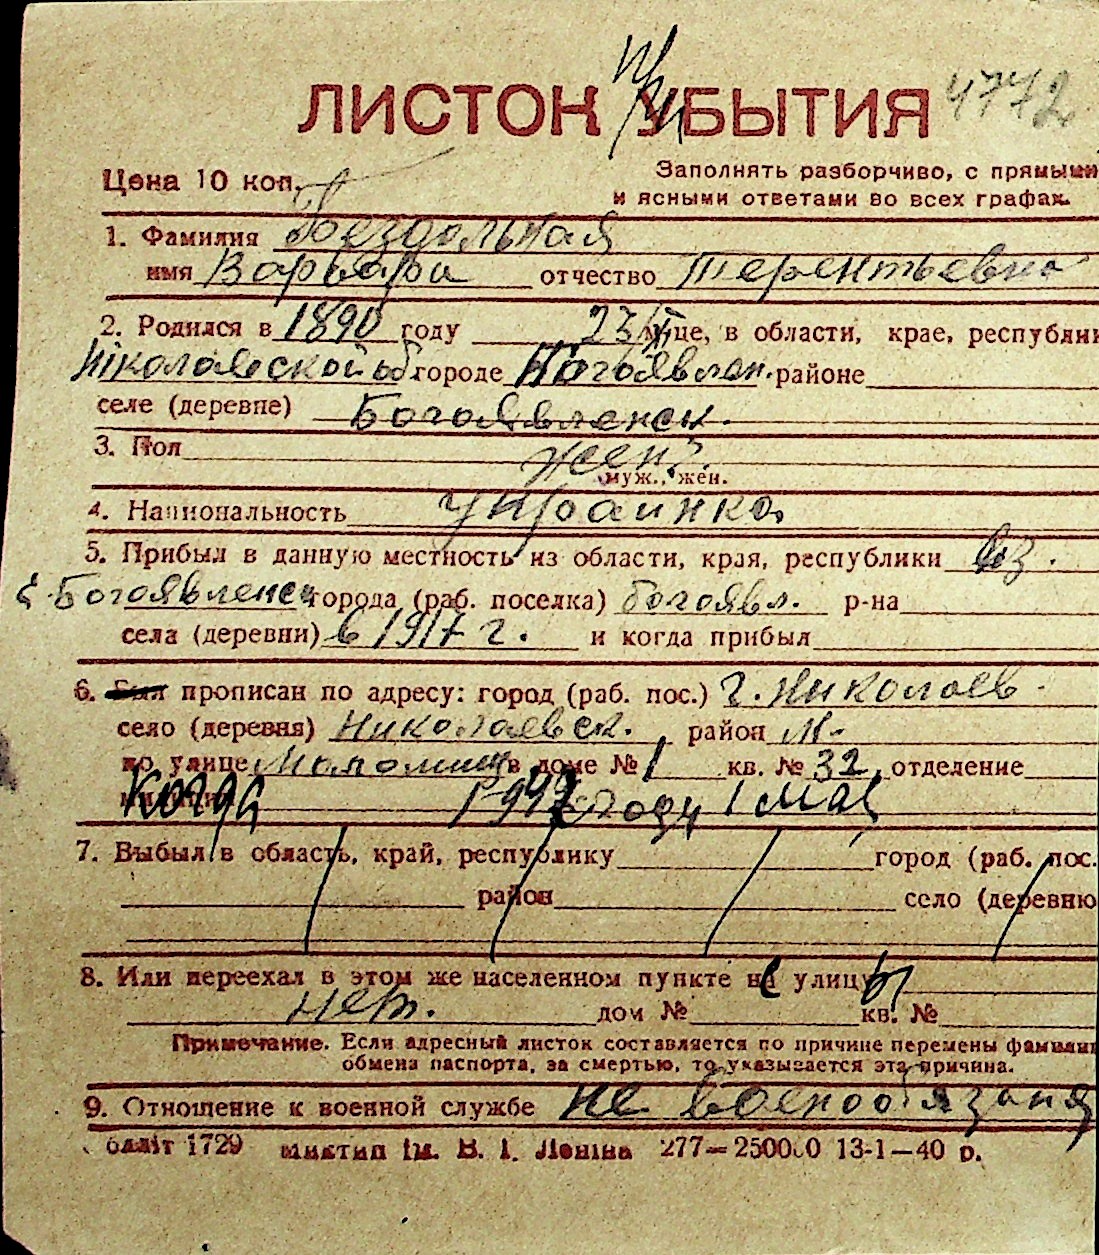 ЛИСТОК УБЫТИЯ 4772
Цена 10 коп.
Заполнять разборчиво, с прямыми
и ясными ответами во всех графах.
1. Фамилия
имя Варвара отчество Терентьевна
2. Родился в 1890 году 23/ м-це, в области, крае, республик
Ніколаевской об. городе Богоявлен. районе
селе (деревпе) Богоявленск.
3. Пол жен.
муж., жен.
4. Национальность украинка
5. Прибыл в данную местность из области, края, республики из.
с. Богоявленск города (раб. поселка) богоявл. р-на
села (деревни) в 1917 г. и когда прибыл
6. Был прописан по адресу: город (раб. пос.) г. Николаев
село (деревня) Николаевск. район Н.
по улице в доме № 1 кв. № 32 отделение
милиции Когда году 1 мая
7. Выбыл в область, край, республику город (раб. пос.
район село (деревню
8. Или переехал в этом же населенном пункте с улицы
нет. дом № кв. №
Примечание. Если адресный листок составляется по причине перемены фамилии
обмена паспорта, за смертью, то указызается эта причина.
9. Отношение к военной службе не военообязаная
блліт 1729 Миктип ім. В. І. Леніна 277—250000 13-1—40 р.